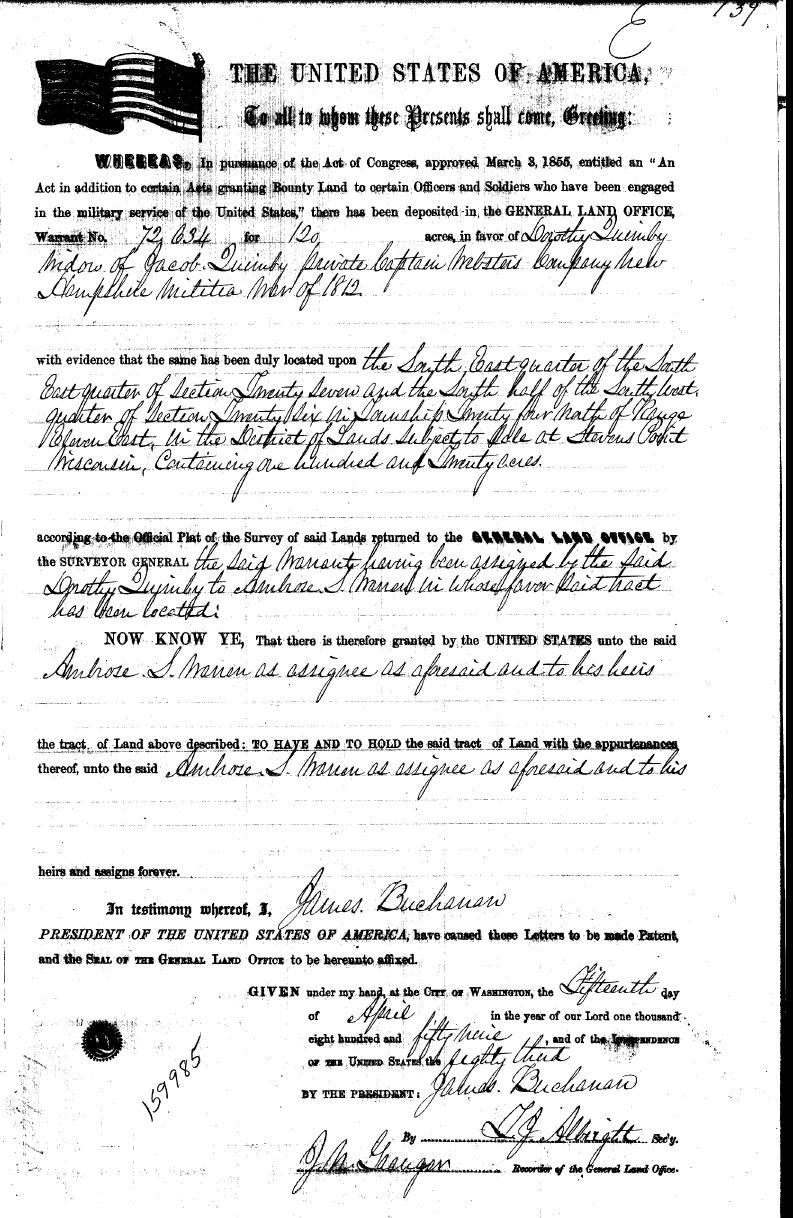 139
E
THE UNITED STATES OF AMERICA,
To all to whom these Presents shall come, Greeting:
WHEREAS, In pursuance of the Act of Congress, approved March 3, 1855, entitled an "An
Act in addition to certain Acts granting Bounty Land to certain Officers and Soldiers who have been engaged
in the military service of the United States," there has been deposited in the GENERAL LAND OFFICE,
Warrant No. 72,634 for 120 acres, in favor of Dorothy Quimby
Widow of Jacob Quimby private Captain Websters Company New
Hampshire Militia War of 1812
with evidence that the same has been duly located upon the South East quarter of the South
East quarter of Section Twenty Seven and the South half of the South West
quarter of Section Twenty Six in Township Twenty four North of Range
Eleven East, in the District of Lands Subject to Sale at Stevens Point
Wisconsin, Containing one hundred and Twenty acres.
according to the Official Plat of the Survey of said Lands returned to the GENERAL LAND OFFICE by
the SURVEYOR GENERAL the said Warrant having been assigned by the said
Dorothy Quimby to Ambrose S. Warren in whose favor said tract
has been located:
NOW KNOW YE, That there is therefore granted by the UNITED STATES unto the said
Ambrose S. Warren as assignee as aforesaid and to his heirs
the tract of Land above described: TO HAVE AND TO HOLD the said tract of Land with the appurtenances
thereof, unto the said Ambrose S. Warren as assignee as aforesaid and to his
heirs and assigns forever.
In testimony whereof, I, James Buchanan
PRESIDENT OF THE UNITED STATES OF AMERICA, have caused these Letters to be made Patent,
and the SEAL OF THE GENERAL LAND OFFICE to be hereunto affixed.
GIVEN under my hand, at the CITY OF WASHINGTON, the Fifteenth day
of April in the year of our Lord one thousand
eight hundred and fifty nine, and of the INDEPENDENCE
OF THE UNITED STATES the eighty third
BY THE PRESIDENT: James Buchanan
By T. J. Albright Sec'y.
J. N. Granger Recorder of the General Land Office.
159985